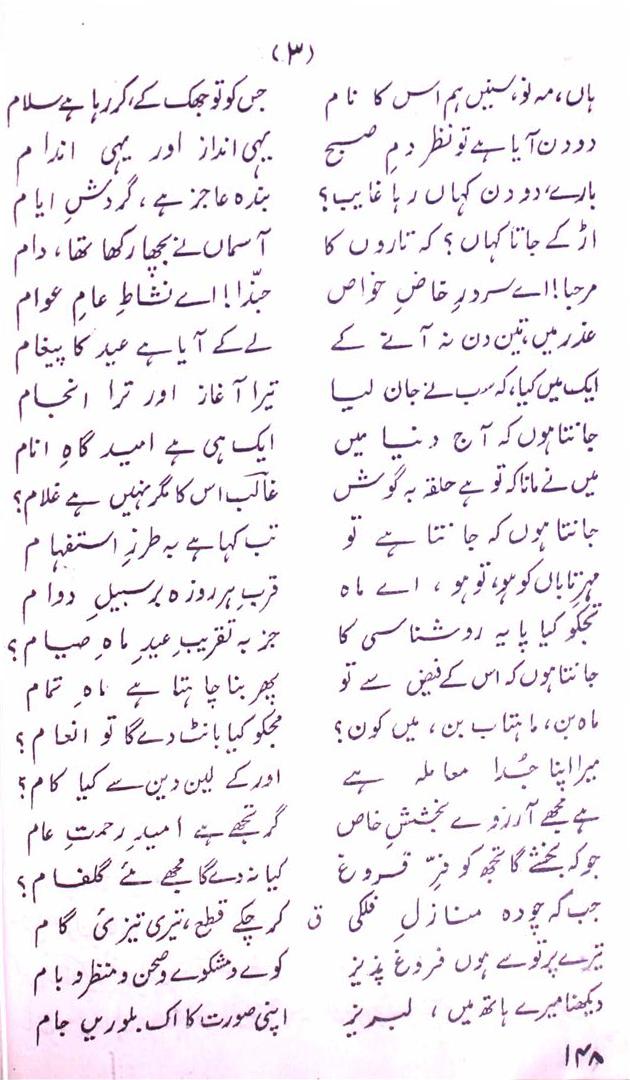 (۳)
ہاں، مہ نو، سنیں ہم اس کا نام جس کو تو جھک کے، کر رہا ہے سلام
دو دن آیا ہے تو نظر دمِ صبح یہی انداز اور یہی اندام
بارے، دو دن کہاں رہا غایب؟ بندہ عاجز ہے، گردشِ ایام
اڑ کے جاتا کہاں؟ کہ تاروں کا آسماں نے بچھا رکھا تھا، دام
مرحبا! اے سرورِ خاصِ خواص حبّذا! اے نشاطِ عامِ عوام
عذر میں، تین دن نہ آنے کے لے کے آیا ہے عید کا پیغام
ایک میں کیا، کہ سب نے جان لیا تیرا آغاز اور ترا انجام
جانتا ہوں کہ آج دنیا میں ایک ہی ہے امید گاہِ انام
میں نے مانا کہ تو ہے حلقہ بہ گوش غالب اس کا مگر نہیں ہے غلام؟
جانتا ہوں کہ جانتا ہے تو تب کہا ہے بہ طرزِ استفہام
مہرِ تاباں کو ہو، تو ہو، اے ماہ قربِ ہر روزہ برسبیلِ دوام
تجکو کیا پایہ روشناسی کا جز بہ تقریبِ عیدِ ماہِ صیام؟
جانتا ہوں کہ اس کے فیض سے تو پھر بنا چاہتا ہے ماہِ تمام
ماہ بن، ماہتاب بن، میں کون؟ مجکو کیا بانٹ دے گا تو انعام؟
میرا اپنا جُدا معاملہ ہے اور کے لین دین سے کیا کام؟
ہے مجھے آرزوے بخششِ خاص گر تجھے ہے امیدِ رحمتِ عام
جو کہ بخشے گا تجھ کو فرِّ فروغ کیا نہ دے گا مجھے مئے گلفام؟
جب کہ چودہ منازلِ فلکی ق کر چکے قطع، تیری تیزیٔ گام
تیرے پرتو سے ہوں فروغ پذیر کوے و مشکوے و صحن و منظر و بام
دیکھنا میرے ہاتھ میں، لبریز اپنی صورت کا اک بلوریں جام
۱۴۸